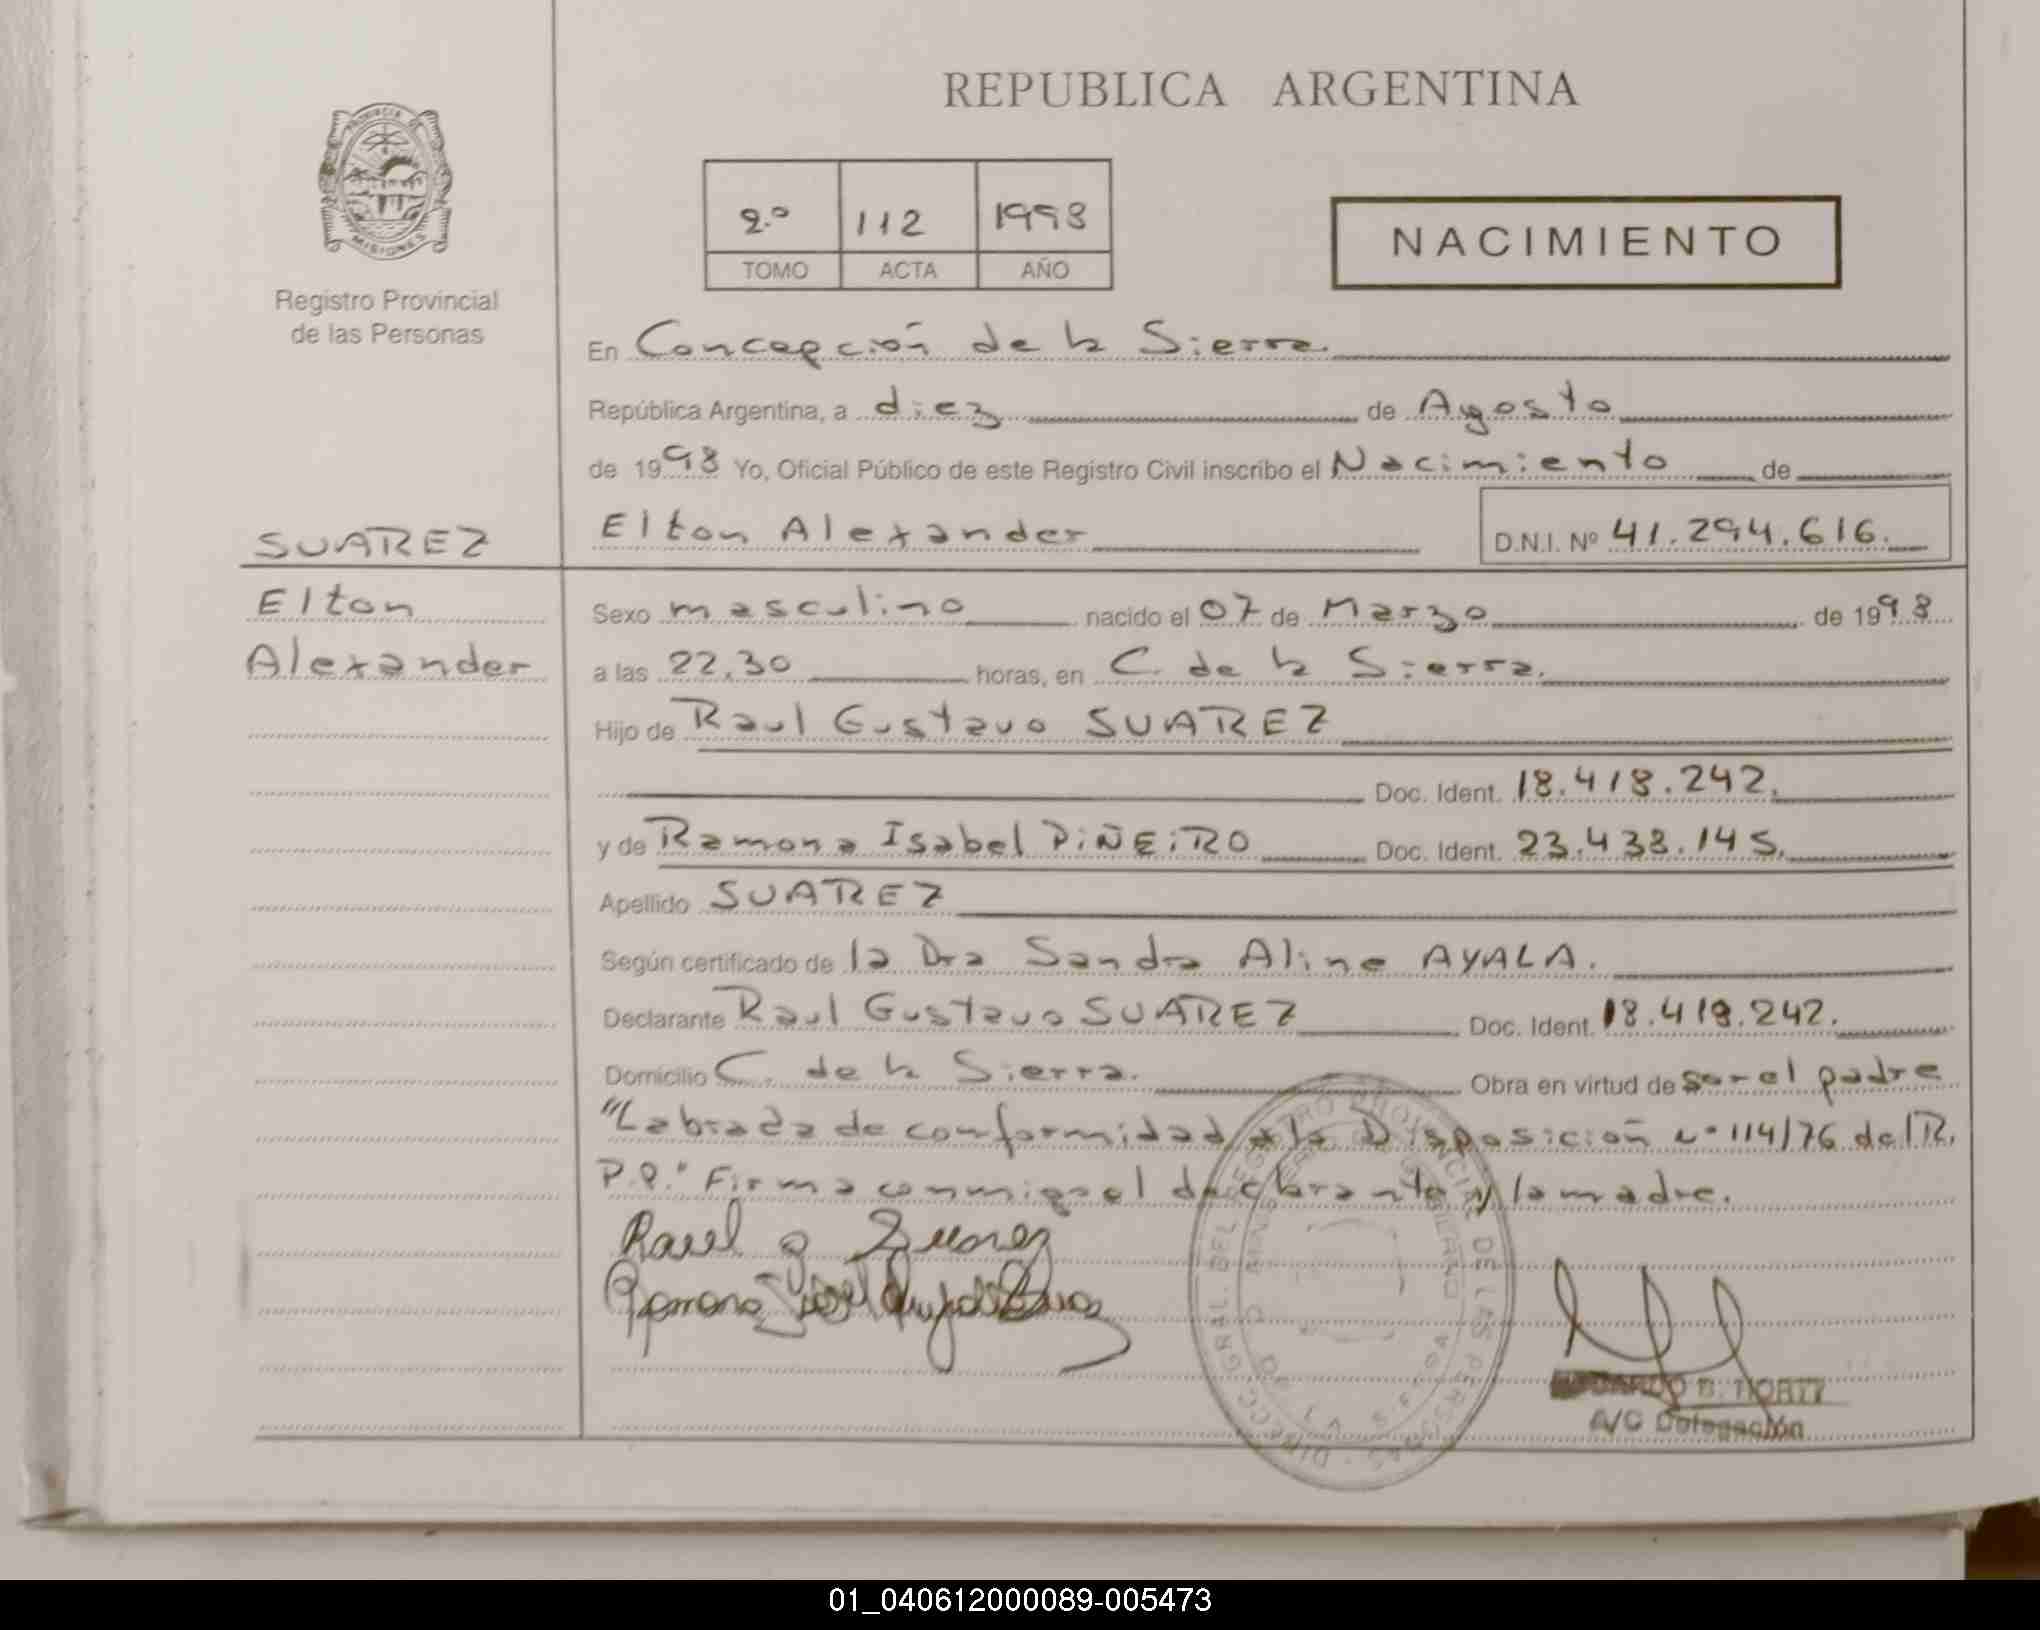 REPUBLICA ARGENTINA
PROVINCIA DE
MISIONES
Registro Provincial
de las Personas
2.º 112 1998
TOMO ACTA AÑO
NACIMIENTO
En Concepción de la Sierra.
República Argentina, a diez de Agosto
de 1998 Yo, Oficial Público de este Registro Civil inscribo el Nacimiento de
SUAREZ
Elton Alexander D.N.I. Nº 41.294.616.
Elton
Alexander
Sexo masculino nacido el 07 de Marzo de 1998
a las 22,30 horas, en C. de la Sierra.
Hijo de Raul Gustavo SUAREZ
Doc. Ident. 18.418.242.
y de Ramona Isabel PIÑEIRO Doc. Ident. 23.438.145.
Apellido SUAREZ
Según certificado de la Dra Sandra Aline AYALA.
Declarante Raul Gustavo SUAREZ Doc. Ident. 18.418.242.
Domicilio C. de la Sierra. Obra en virtud de ser el padre
"Labrada de conformidad a la Disposición Nº 114/76 del R.
P.P." Firma conmigo el declarante y la madre.
Raul G Suarez
Ramona
DIRECC. GRAL. DEL REGISTRO PROVINCIAL DE LAS PERSONAS
A/C Delegación
01_040612000089-005473